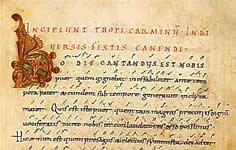 INCIPIUNT TROPI CARMINU IN DI
VERSIS FESTIS CANENDI.
HODIE CANTANDUS EST NOBIS
puer, quem gignebat ineffabiliter ante tem
pora pater, & eundem sub tempore generavit inclyta
mater. Quis est iste puer quem tam magnis preconiis dignum
vociferatis dicite nobis ut conlaudatores esse possimus
Hic enim est quem presagus & electus